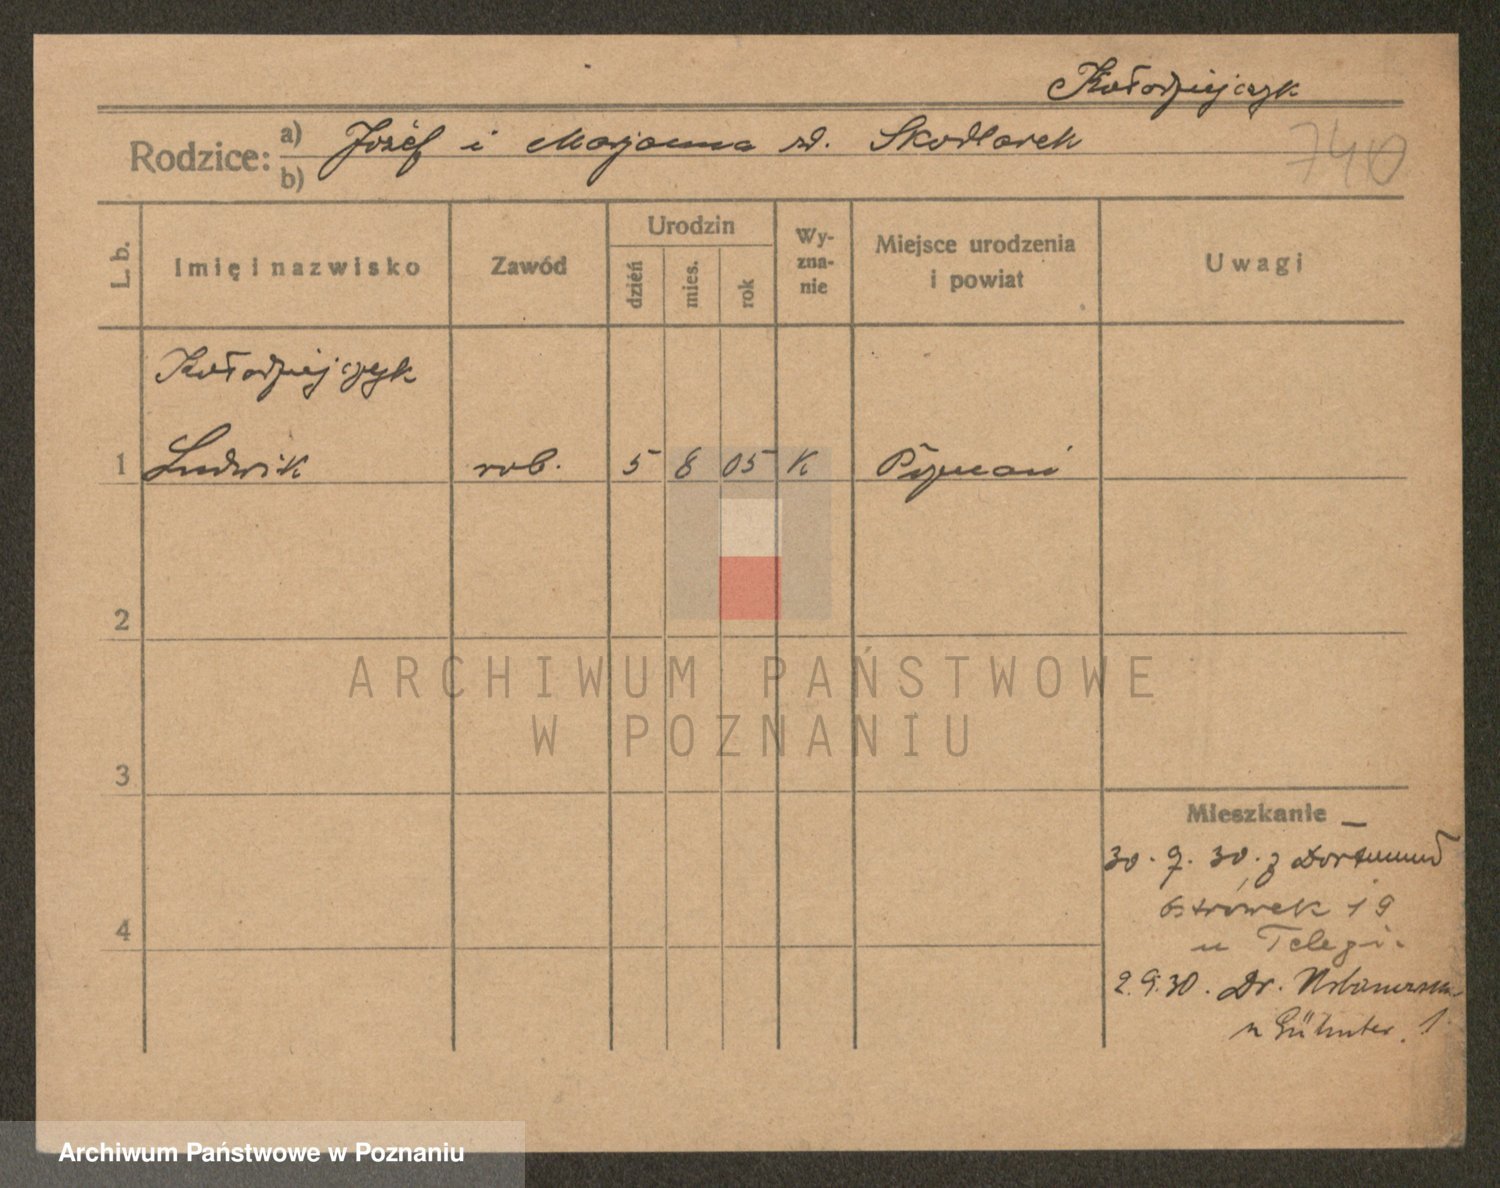 Kołodziejczyk
740
Rodzice: a) Józef i Marjanna zd. Skodlarek
b)
L. b.
Imię i nazwisko
Zawód
Urodzin
dzień
mies.
rok
Wy-
zna-
nie
Miejsce urodzenia
i powiat
Uwagi
Kołodziejczyk
1 Ludwik rob. 5 8 05 K Poznań
2
3
4
Mieszkanie
30. 7. 30. z Dortmund
Ostrówek 19
u
2.9.30. Dr.
u 1
ARCHIWUM PAŃSTWOWE
W POZNANIU
Archiwum Państwowe w Poznaniu